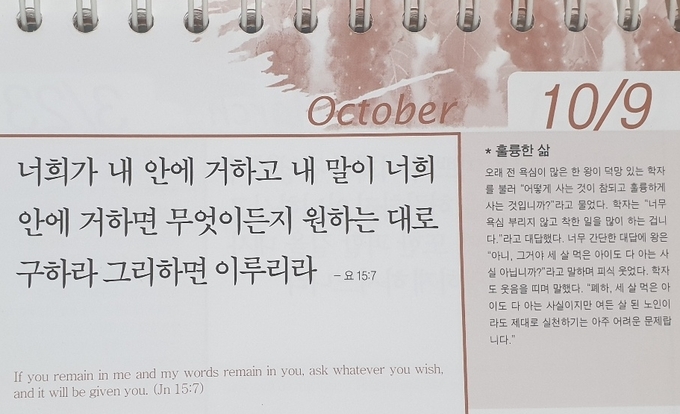 October
10/9
너희가 내 안에 거하고 내 말이 너희
안에 거하면 무엇이든지 원하는 대로
구하라 그리하면 이루리라 – 요 15:7
If you remain in me and my words remain in you, ask whatever you wish,
and it will be given you. (Jn 15:7)
* 훌륭한 삶
오래 전 욕심이 많은 한 왕이 덕망 있는 학자
를 불러 "어떻게 사는 것이 참되고 훌륭하게
사는 것입니까?"라고 물었다. 학자는 "너무
욕심 부리지 않고 착한 일을 많이 하는 겁니
다."라고 대답했다. 너무 간단한 대답에 왕은
"아니, 그거야 세 살 먹은 아이도 다 아는 사
실 아닙니까?"라고 말하며 피식 웃었다. 학자
도 웃음을 띠며 말했다. "폐하, 세 살 먹은 아
이도 다 아는 사실이지만 여든 살 된 노인이
라도 제대로 실천하기는 아주 어려운 문제랍
니다."